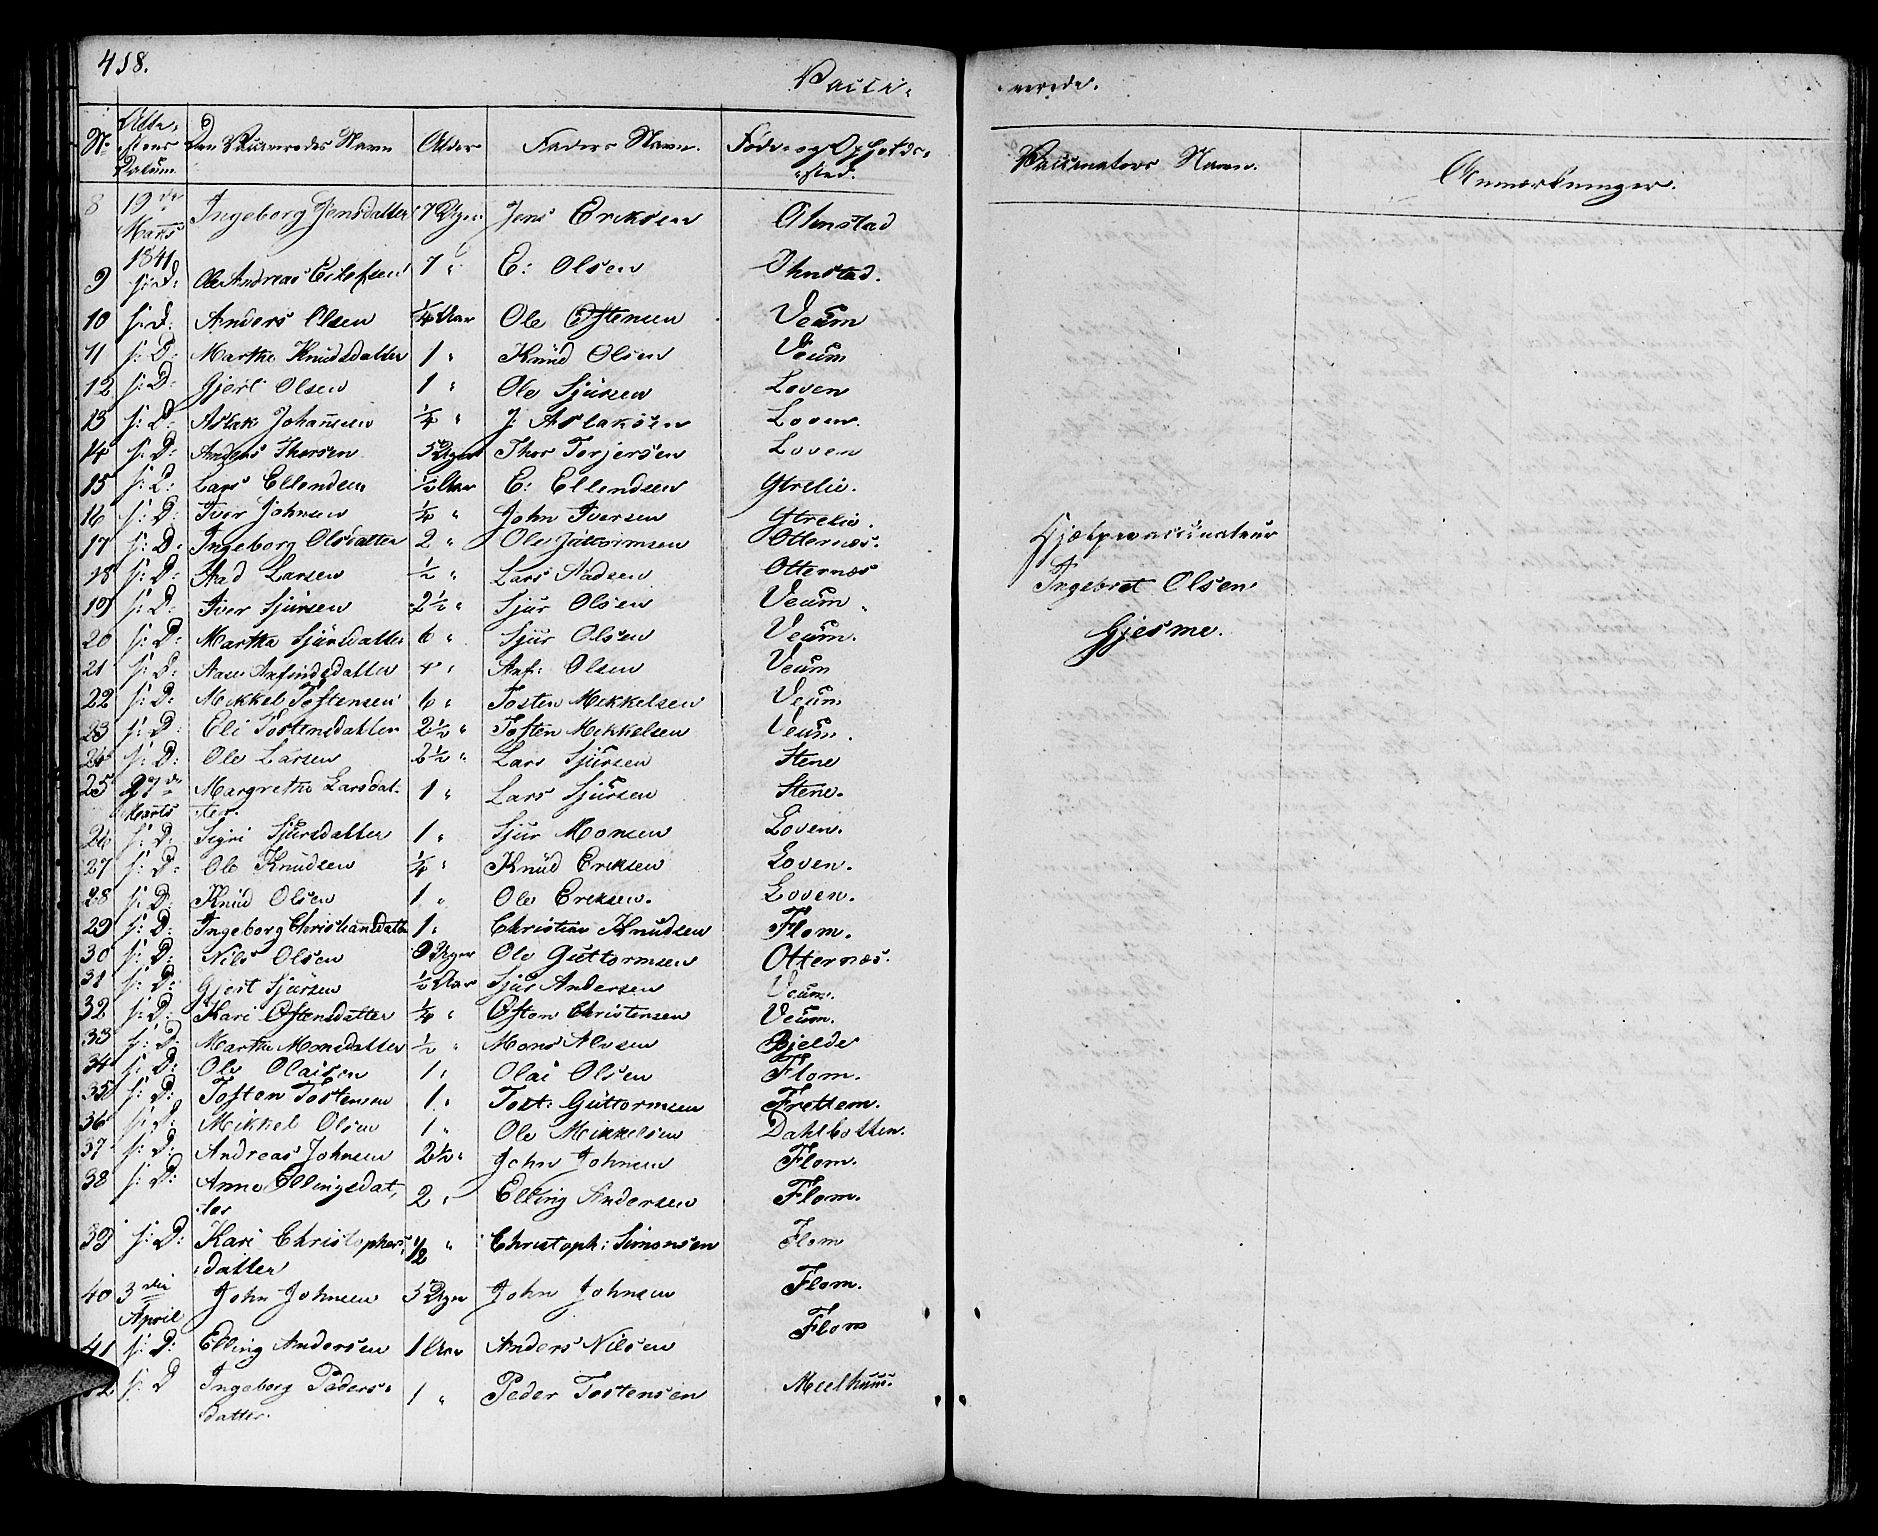 418.
Vacci- nerede.
No Attestens Datum Den Vaccineredes Navn Alder Faders Navn. Føde- og Opholdssted. Vaccinateurs Navn. Anmærkninger.
8 19de Marts 1841 Ingeborg Jensdatter 7 Uger Jens Eriksen Ohnstad
9 s: D: Ole Andreas Eilefsen 7 " E: Olsen Ohnstad.
10 s: D: Anders Olsen 1/4 Aar Ole Østensen Veum
11 s: D: Martha Knudsdatter 1 " Knud Olsen Veum
12 s: D: Gjert Olsen 1 " Ole Sjursen Loven
13 s: D: Aslak Johannsen 1/4 " J: Aslaksen Loven.
14 s: D: Anders Thorsen 5 Uger Thor Torjersen Loven
15 s: D: Lars Ellendsen 1/2 Aar E: Ellendsen Ytrelie.
16 s: D: Iver Johnsen 1/4 " John Iversen Ytrelie.
17 s: D: Ingeborg Olsdatter 2 " Ole Guttormsen Otternæs.
18 s: D: Aad Larsen 1/2 " Lars Aadsen Otternæs
19 s: D: Iver Sjursen 2 1/2 " Sjur Olsen Veum
20 s: D: Martha Sjursdatter 6 " Sjur Olsen Veum.
21 s: D: Aase Anfindsdatter 4 " Anf: Olsen Veum
22 s: D: Mikkel Tostensen 6 " Tosten Mikkelsen Veum
23 s: D: Eli Tostensdatter 2 1/2 " Tosten Mikkelsen Veum.
24 s: D: Ole Larsen 2 1/2 " Lars Sjursen Stene
25 27de Marts Margrethe Larsdatter. 1 " Lars Sjursen Stene.
26 s: D: Sigri Sjursdatter 1 " Sjur Monsen Loven.
27 s: D: Ole Knudsen 1/4 " Knud Eriksen Loven.
28 s: D: Knud Olsen 1 " Ole Eriksen. Loven.
29 s: D: Ingeborg Christiansdatter 1 " Christian Knudsen Flom.
30 s: D: Nils Olsen 9 Uger Ole Guttormsen Otternæs.
31 s: D: Gjert Sjursen 1/2 Aar Sjur Andersen Veum.
32 s: D: Kari Østensdatter 1/4 " Østen Christensen Veum.
33 s: D: Martha Monsdatter 1/2 " Mons Alvsen Bjelde
34 s: D: Ole Olaisen 1 " Olai Olsen Flom.
35 s: D: Tosten Tostensen 1 " Tost: Guttormsen Frettem.
36 s: D: Mikkel Olsen 1 " Ole Mikkelsen Dahlbotten.
37 s: D: Andreas Johnsen 2 1/2 " John Johnsen Flom.
38 s: D: Anne Ellingsdatter 2 " Elling Andersen Flom.
39 s: D: Kari Christophersdatter 1/2 " Christoph: Simonsen Flom
40 3die April John Johnsen 5 Uger John Johnsen Flom.
41 s: D: Elling Andersen 1 Aar Anders Nilsen Flom
42 s: D Ingeborg Pedersdatter. 1 " Peder Tostensen Meelhuus.
Hjælpevaccinateur
Ingebret Olsen
Gjesme.